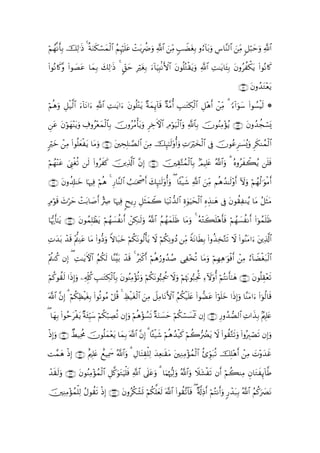 اللَّهِ وَحَبْلٍ مِنَ النَّاسِ وَبَاءُوا بِغَضَبٍ مِنَ اللَّهِ وَضُرِبَتْ عَلَيْهِمُ الْمَسْكَنَةُ ۚ ذَٰلِكَ بِأَنَّهُمْ
كَانُوا يَكْفُرُونَ بِآيَاتِ اللَّهِ وَيَقْتُلُونَ الْأَنْبِيَاءَ بِغَيْرِ حَقٍّ ۚ ذَٰلِكَ بِمَا عَصَوْا وَكَانُوا
يَعْتَدُونَ ﴿١١٢﴾
۞ لَيْسُوا سَوَاءً ۗ مِنْ أَهْلِ الْكِتَابِ أُمَّةٌ قَائِمَةٌ يَتْلُونَ آيَاتِ اللَّهِ آنَاءَ اللَّيْلِ وَهُمْ
يَسْجُدُونَ ﴿١١٣﴾ يُؤْمِنُونَ بِاللَّهِ وَالْيَوْمِ الْآخِرِ وَيَأْمُرُونَ بِالْمَعْرُوفِ وَيَنْهَوْنَ عَنِ
الْمُنْكَرِ وَيُسَارِعُونَ فِي الْخَيْرَاتِ وَأُولَٰئِكَ مِنَ الصَّالِحِينَ ﴿١١٤﴾ وَمَا يَفْعَلُوا مِنْ خَيْرٍ
فَلَنْ يُكْفَرُوهُ ۗ وَاللَّهُ عَلِيمٌ بِالْمُتَّقِينَ ﴿١١٥﴾ إِنَّ الَّذِينَ كَفَرُوا لَنْ تُغْنِيَ عَنْهُمْ
أَمْوَالُهُمْ وَلَا أَوْلَادُهُمْ مِنَ اللَّهِ شَيْئًا ۖ وَأُولَٰئِكَ أَصْحَابُ النَّارِ ۚ هُمْ فِيهَا خَالِدُونَ ﴿١١٦﴾
مَثَلُ مَا يُنْفِقُونَ فِي هَٰذِهِ الْحَيَاةِ الدُّنْيَا كَمَثَلِ رِيحٍ فِيهَا صِرٌّ أَصَابَتْ حَرْثَ قَوْمٍ
ظَلَمُوا أَنْفُسَهُمْ فَأَهْلَكَتْهُ ۚ وَمَا ظَلَمَهُمُ اللَّهُ وَلَٰكِنْ أَنْفُسَهُمْ يَظْلِمُونَ ﴿١١٧﴾ يَا أَيُّهَا
الَّذِينَ آمَنُوا لَا تَتَّخِذُوا بِطَانَةً مِنْ دُونِكُمْ لَا يَأْلُونَكُمْ خَبَالًا وَدُّوا مَا عَنِتُّمْ قَدْ بَدَتِ
الْبَغْضَاءُ مِنْ أَفْوَاهِهِمْ وَمَا تُخْفِي صُدُورُهُمْ أَكْبَرُ ۚ قَدْ بَيَّنَّا لَكُمُ الْآيَاتِ ۖ إِنْ كُنْتُمْ
تَعْقِلُونَ ﴿١١٨﴾ هَا أَنْتُمْ أُولَاءِ تُحِبُّونَهُمْ وَلَا يُحِبُّونَكُمْ وَتُؤْمِنُونَ بِالْكِتَابِ كُلِّهِ وَإِذَا لَقُوكُمْ
قَالُوا آمَنَّا وَإِذَا خَلَوْا عَضُّوا عَلَيْكُمُ الْأَنَامِلَ مِنَ الْغَيْظِ ۚ قُلْ مُوتُوا بِغَيْظِكُمْ ۗ إِنَّ اللَّهَ
عَلِيمٌ بِذَاتِ الصُّدُورِ ﴿١١٩﴾ إِنْ تَمْسَسْكُمْ حَسَنَةٌ تَسُؤْهُمْ وَإِنْ تُصِبْكُمْ سَيِّئَةٌ يَفْرَحُوا بِهَا ۖ
وَإِنْ تَصْبِرُوا وَتَتَّقُوا لَا يَضُرُّكُمْ كَيْدُهُمْ شَيْئًا ۗ إِنَّ اللَّهَ بِمَا يَعْمَلُونَ مُحِيطٌ ﴿١٢٠﴾ وَإِذْ
غَدَوْتَ مِنْ أَهْلِكَ تُبَوِّئُ الْمُؤْمِنِينَ مَقَاعِدَ لِلْقِتَالِ ۗ وَاللَّهُ سَمِيعٌ عَلِيمٌ ﴿١٢١﴾ إِذْ هَمَّتْ
طَائِفَتَانِ مِنْكُمْ أَنْ تَفْشَلَا وَاللَّهُ وَلِيُّهُمَا ۗ وَعَلَى اللَّهِ فَلْيَتَوَكَّلِ الْمُؤْمِنُونَ ﴿١٢٢﴾ وَلَقَدْ
نَصَرَكُمُ اللَّهُ بِبَدْرٍ وَأَنْتُمْ أَذِلَّةٌ ۖ فَاتَّقُوا اللَّهَ لَعَلَّكُمْ تَشْكُرُونَ ﴿١٢٣﴾ إِذْ تَقُولُ لِلْمُؤْمِنِينَ